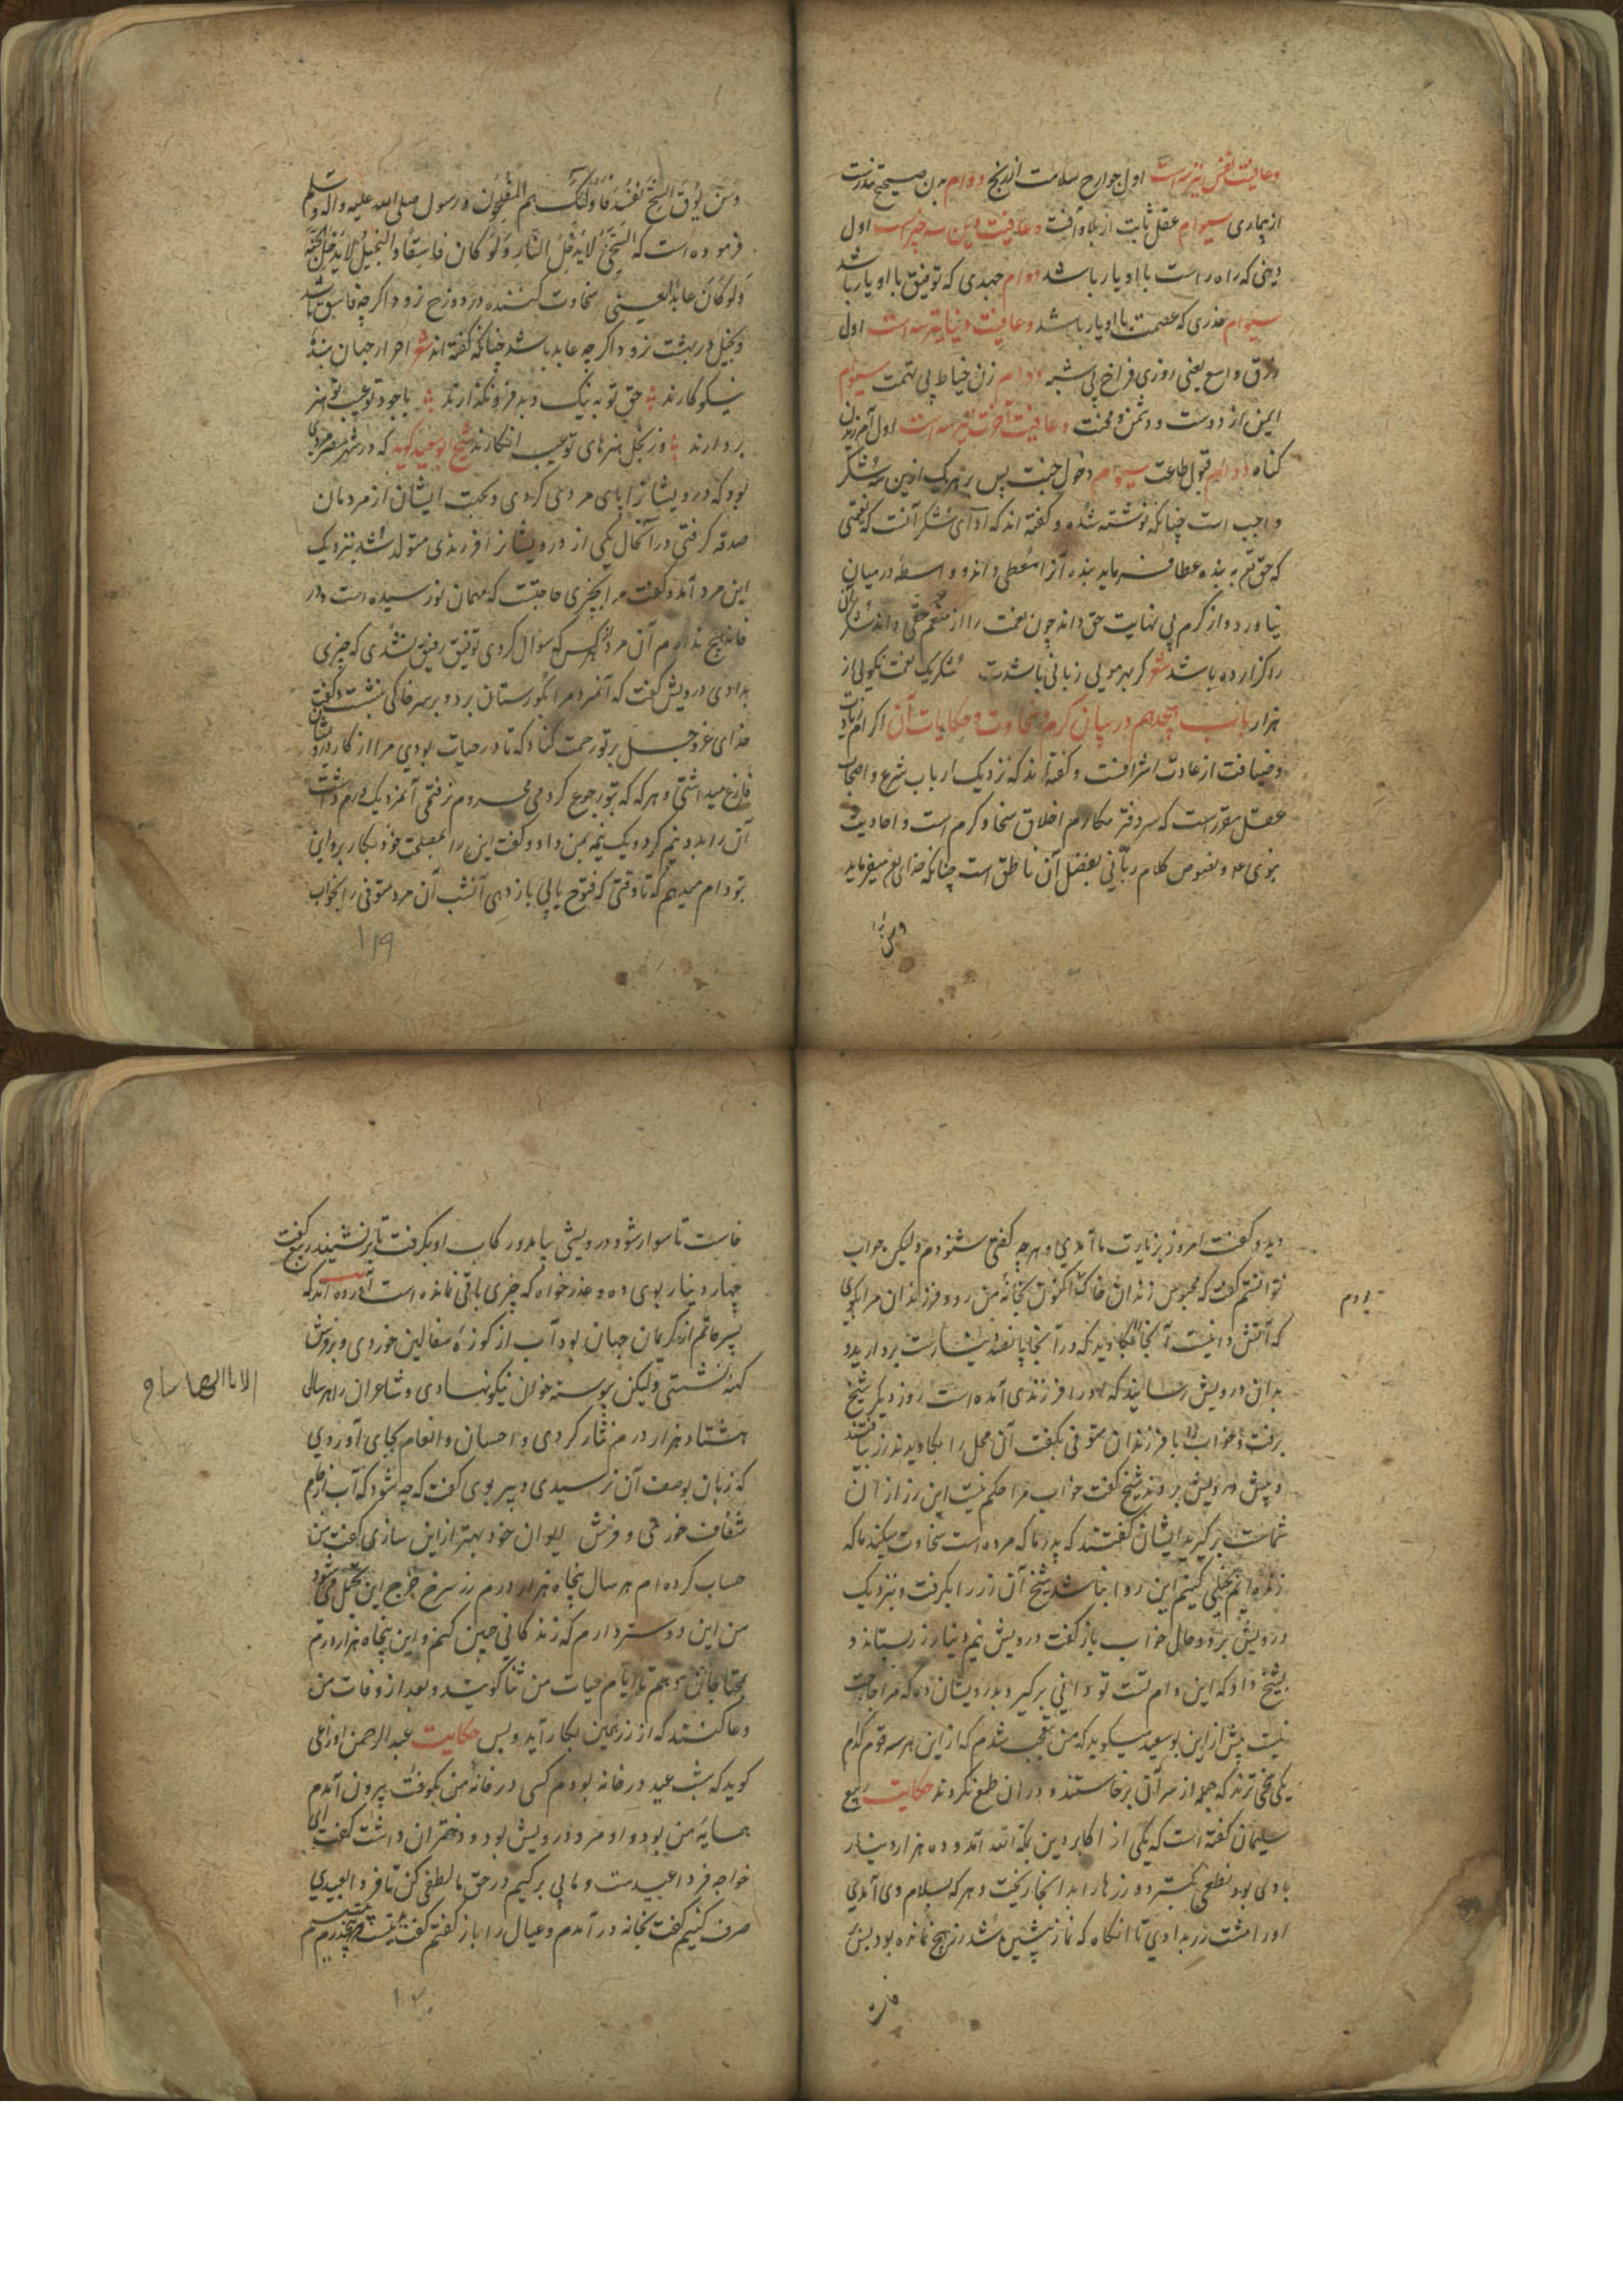 وعافیت نفس نیز سه است اول جوارح سلامت از رنج دوام بدن صحیح تندرست
از بیماری سیوام عقل ثابت از بلا و آفت وعافیت دین سه چیز است اول
دینی که راه راست با او یار باشد دوام جهدی که توفیق با او یار باشد
سیوام حذری که عصمت با او یار باشد وعافیت دنیا نیز سه است اول
رزق واسع یعنی روزی فراخ بی شبه دوام زن خیاط بی تهمت سیوام
ایمن از دوست و دشمن و محنت وعافیت آخرت نیز سه است اول آمرزیدن
کناه دوام قبول طاعت سیوام دخول جنت پس بر هر یک از این سه شکر
واجب است چنانکه نوشته شده و کفته اند که ادای شکر آنست که نعمتی
که حق تع به بنده عطا فرماید بنده آنرا معطی داند و واسطه در میان
نیاورد و از کرم بی نهایت حق داند چون نعمت را از منعم حقی داند شکر آن
را کزارده باشد شعر کر بهر مویی زبانی باشدت شکر یک نعمت نکویی از
هزار باب هجدهم در بیان کرم و سخاوت و حکایات آن اکرام
وضیافت از عادت اشرافست و کفته اند که نزدیک ارباب شرع و اصحاب
عقل مقرر است که سر دفتر مکارم اخلاق سخا و کرم است و احادیث
نبوی و نصوص کلام ربانی بفضل آن ناطق است چنانکه خدای تع میفرماید
ومن
ومن یوق الشح نفسه فاولئک هم المفلحون و رسول صلی الله علیه واله وسلم
فرموده است که السخی لا یدخل النار ولو کان فاسقا والبخیل لا یدخل الجنة
ولو کان عابدا یعنی سخاوت کننده در دوزخ نرود اکرچه فاسق باشد
وبخیل در بهشت نرود اکرچه عابد باشد چنانکه کفته اند شعر احرار جهان بنده
نیکو کارند حق تو به نیک و بد فرو نکذارند با جود تو عیب تو هنر
بردارند وز بخل هنرهای تو عیب انکارند شیخ ابو سعید کوید که در شهر مصر مردی
بود که درویشانرا پای مردی کردی و بجهت ایشان از مردمان
صدقه کرفتی در آنحال یکی از درویشانرا فرزندی متولد شد بنزدیک
این مرد آمد و کفت مرا بچیزی حاجتست که مهمان نو رسیده است و در
خانه هیچ ندارم آن مرد از هر کس که سوال کردی توفیق رفیق نشدی که چیزی
بدادی درویش کفت که آنمرد مرا بکورستان برد و بر سر خاکی بنشست و کفت
خدای عز و جل بر تو رحمت کناد که تا در حیات بودی مرا از کار درویشان
فارغ میداشتی و هر که که بتو رجوع کردمی محروم نرفتمی آنمرد یک درم داشت
آن را بدو نیم کرد و یک نیمه بمن داد و کفت این را بمصلحت خود بکار بر و این
بتو وام میدهم که تا وقتی که فتوح یابی باز دهی آنشب آن مرد متوفی را بخواب
۱۱۹
دید و کفت امروز بزیارت ما آمدی و هرچه کفتی شنودم ولیکن جواب
نتوانستم کفت که محبوس زندان خاکم اکنون بخانه من رو و فرزندان مرا بکوی
که آتش دانیست آنجا بکاوید که در آنجا پانصد دینار است بردارید و
بدان درویش رسانید که او را فرزندی آمده است روز دیکر شیخ
برفت و خواب را با فرزندان متوفی بکفت آن محل را بکاویدند زر بیافتند
و پیش درویش بردند شیخ کفت خواب مرا حکم نیست این زر از آن
شماست برکیرید ایشان کفتند که پدر ما که مرده است سخاوت میکند ما که
زنده ایم بخیلی کنیم این روا نباشد شیخ آن زر را بکرفت و بنزدیک
درویش برد و حال خواب باز کفت درویش نیم دینار زر بستاند و
بشیخ داد که این وام تست تو دانی برکیر و بدرویشان ده که مرا حاجت
نیست پیش از این بو سعید میکوید که من متعجب شدم که از این هر سه قوم کدام
یکی سخی ترند که جمله از سر آن برخاستند و در آن طمع نکردند حکایت ربیع
سلیمان کفته است که یکی از اکابر دین بمکه آمد و ده هزار دینار
با وی بود نطعی بکسترد و زرها را بدانجا ریخت و هر که بسلام وی آمدی
او را مشت زر بدادی تا آنکاه که نماز پیشین شد زر هیچ نمانده بود پس
خاست تا سوار شود درویشی بیامد و رکاب او بکرفت تا برنشیند ربیع کفت
چهار دینار بوی ده و عذر خواه که چیزی باقی نمانده است آورده اند که
پسر حاتم از کریمان جهان بود آب از کوزه سفالین خوردی و بر فرش
کهنه نشستی ولیکن پیوسته خوان نیکو نهادی و شاعران را هر سالی
هشتاد هزار درم نثار کردی و احسان و انعام بجای آوردی
که زبان بوصف آن نرسیدی دبیر بوی کفت که چه شود که آب از جام
شفاف خوری و فرش ایوان خود بهتر از این سازی کفت من
حساب کرده ام هر سال پنجاه هزار درم زر سرخ خرج این تجمل می شود
من این دوستر دارم که زندکانی چنین کنم و این پنجاه هزار درم
بمحتاجان دهم تا ایام حیات من ثنا کویند و بعد از وفات من
دعا کنند که از زر همین بکار آید و بس حکایت عبد الرحمن اوزاعی
کوید که شب عید در خانه بودم کسی در خانه من بکوفت بیرون آمدم
همسایه من بود و او مرد درویش بود و دختران داشت کفت ای
خواجه فردا عیدست و ما بی برکیم در حق ما لطفی کن تا فردا بعیدی
صرف کنیم کفت بخانه در آمدم و عیال را باز کفتم کفت بیست و پنجدرم
۱۲۰